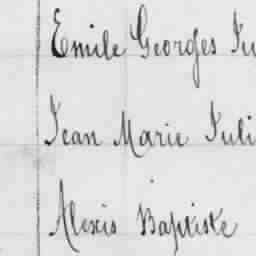 Emile Georges Ju
Jean Marie Juli
Alexis Baptiste